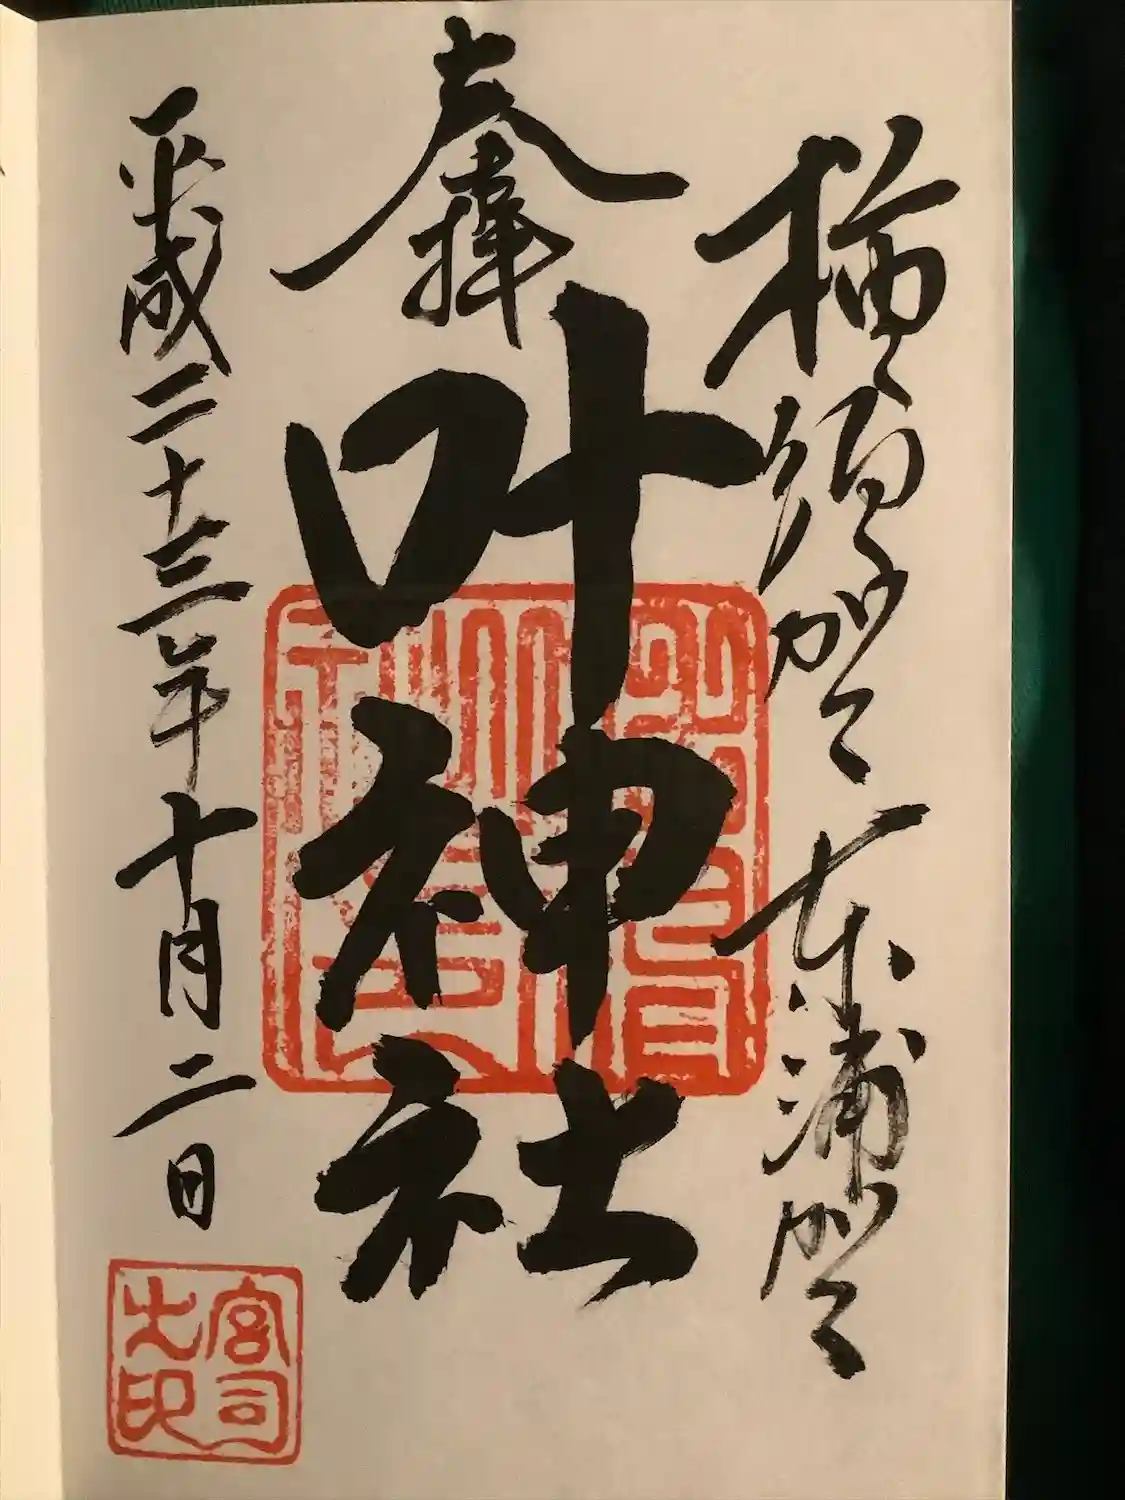 横須賀 東浦賀
奉拝
叶神社
平成二十三年十月二日
宮司
之印